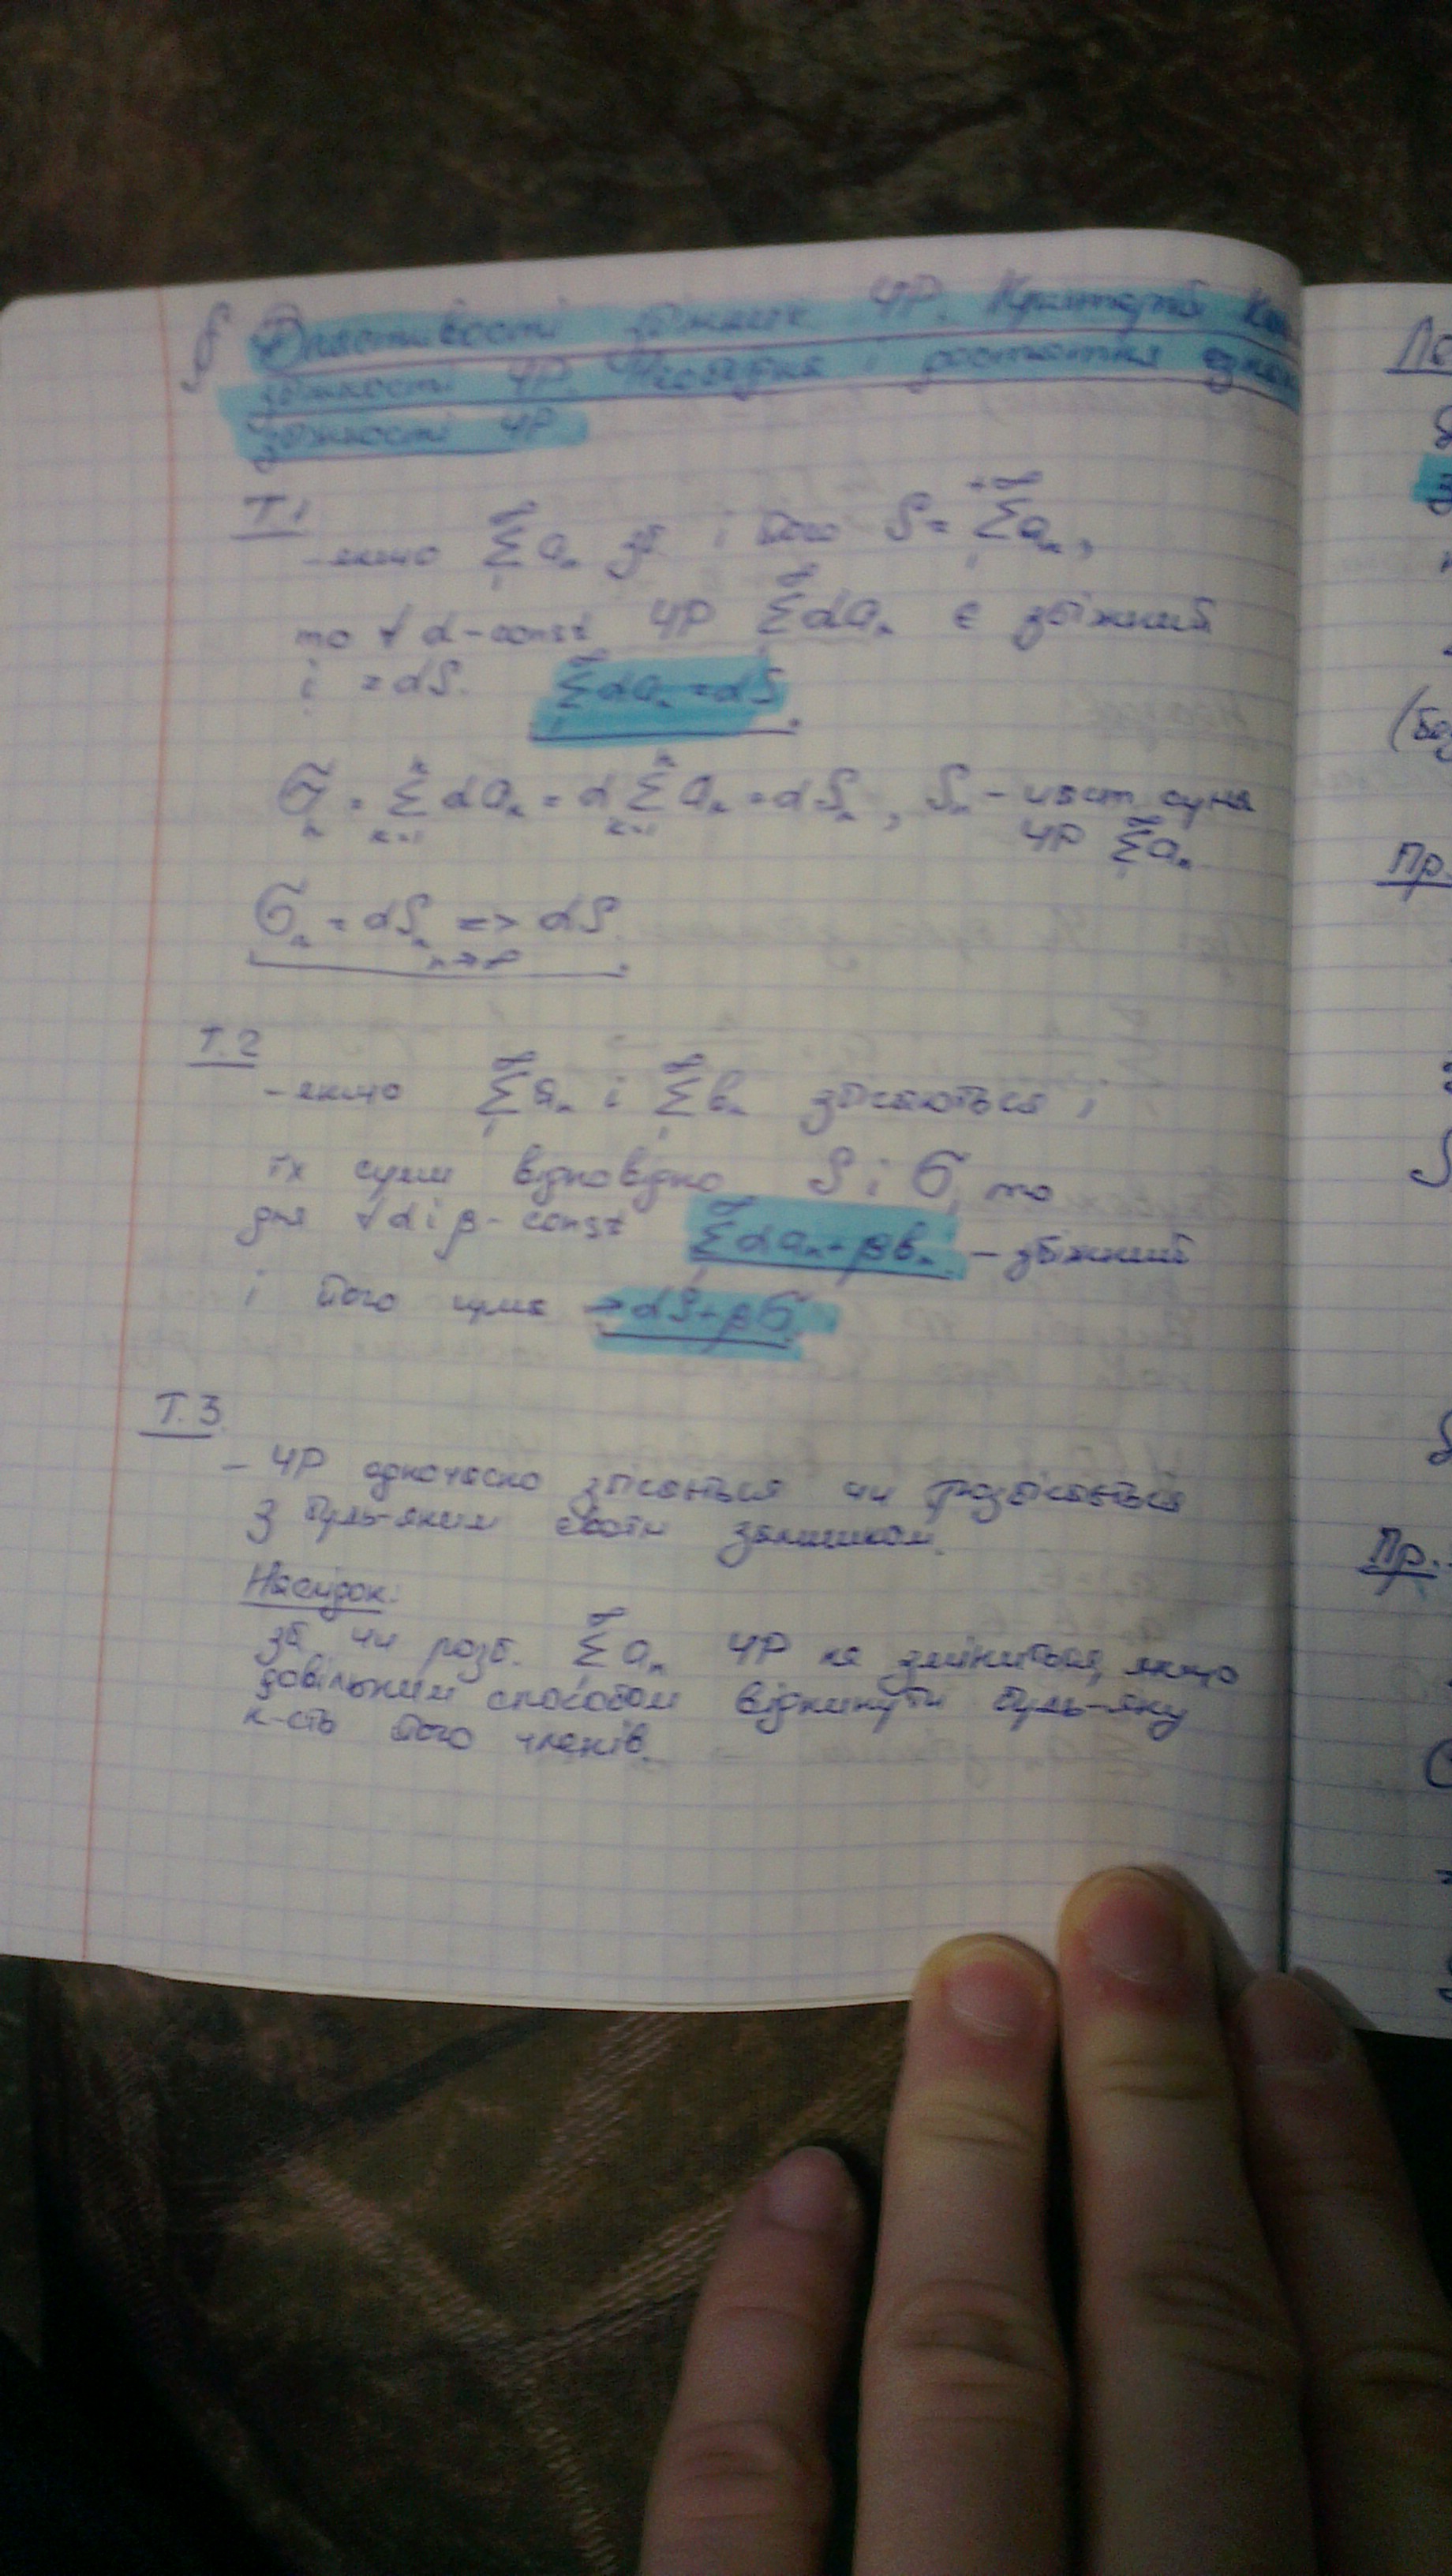 § Властивості збіжних ЧР. Критерій
збіжності ЧР. Необхідна і достатня
збіжності ЧР
Т.1
- якщо ∞∑₁ aₙ зб. і його S = +∞∑₁ aₙ,
то ∀ α-const ЧР ∞∑₁ αaₙ є збіжний
і = αS. ∞∑₁ αaₙ = αS.
σₙ = n∑ₖ₌₁ αaₙ = α n∑ₖ₌₁ aₙ = αSₙ, Sₙ - част. сума
ЧР ∞∑₁ aₙ
σₙ = αSₙ => αS.
n→∞
Т.2
- якщо ∞∑₁ aₙ і ∞∑₁ bₙ збігаються,
їх суми відповідно S і σ, то
для ∀ α і β - const ∞∑₁ αaₙ + βbₙ. - збіжний
і його сума → αS + βσ.
Т.3
- ЧР одночасно збігається чи розбігається
з будь-яким своїм залишком.
Наслідок:
зб. чи розб. ∞∑₁ aₙ ЧР не зміниться, якщо
довільним способом відкинути будь-яку
к-сть його членів.
Пр.
Пр.